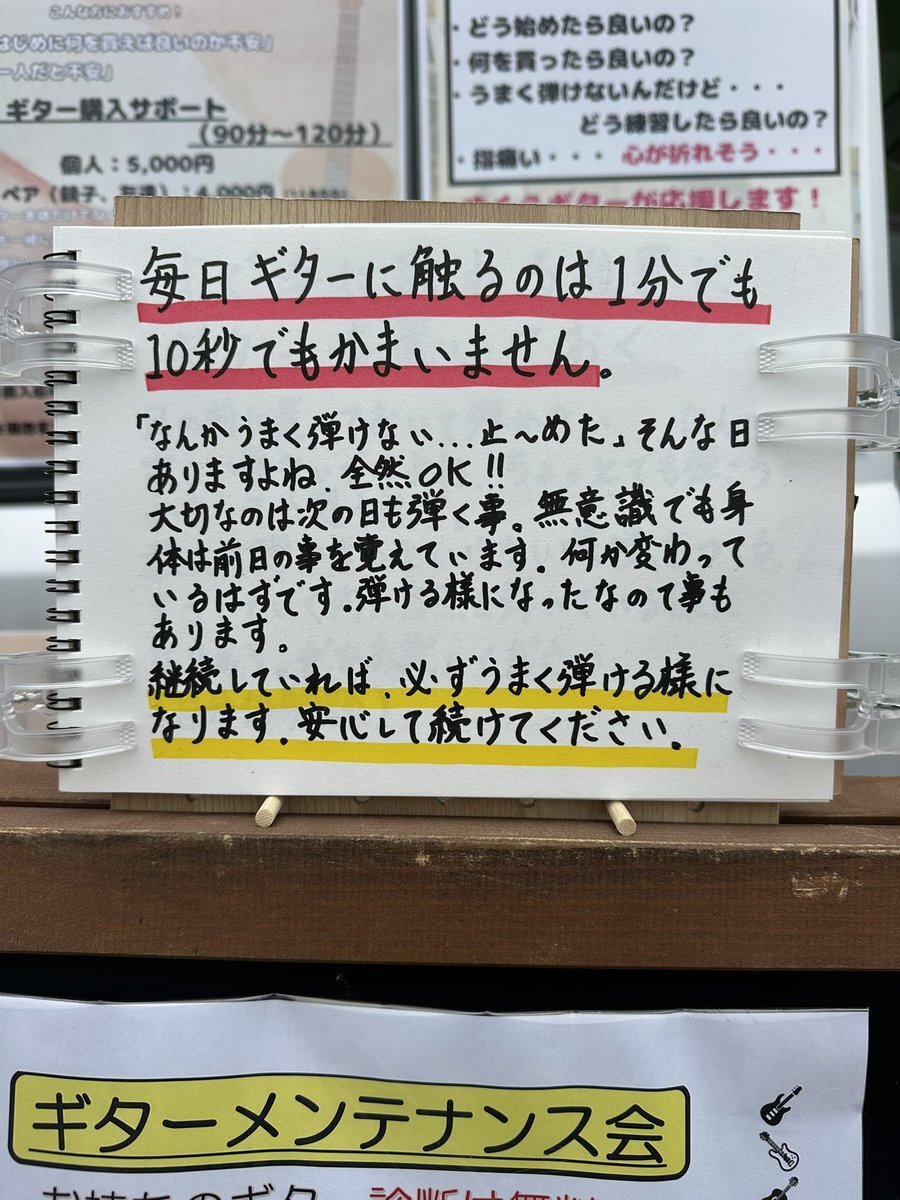 こんな方におすすめ！
はじめに何を買えば良いのか不安」
一人だと不安」
ギター購入サポート
（90分～120分）
個人：5,000円
ペア（親子、友達）：4,000円
・どう始めたら良いの？
・何を買ったら良いの？
・うまく弾けないんだけど・・・
どう練習したら良いの？
・指痛い・・・ 心が折れそう・・・
ギターが応援します！
毎日ギターに触るのは1分でも
10秒でもかまいません。
「なんかうまく弾けない...止～めた」そんな日
ありますよね、全然OK!!
大切なのは次の日も弾く事。無意識でも身
体は前日の事を覚えています。何か変わって
いるはずです。弾ける様になったなので事も
あります。
継続していれば、必ずうまく弾ける様に
なります。安心して続けてください。
ギターメンテナンス会